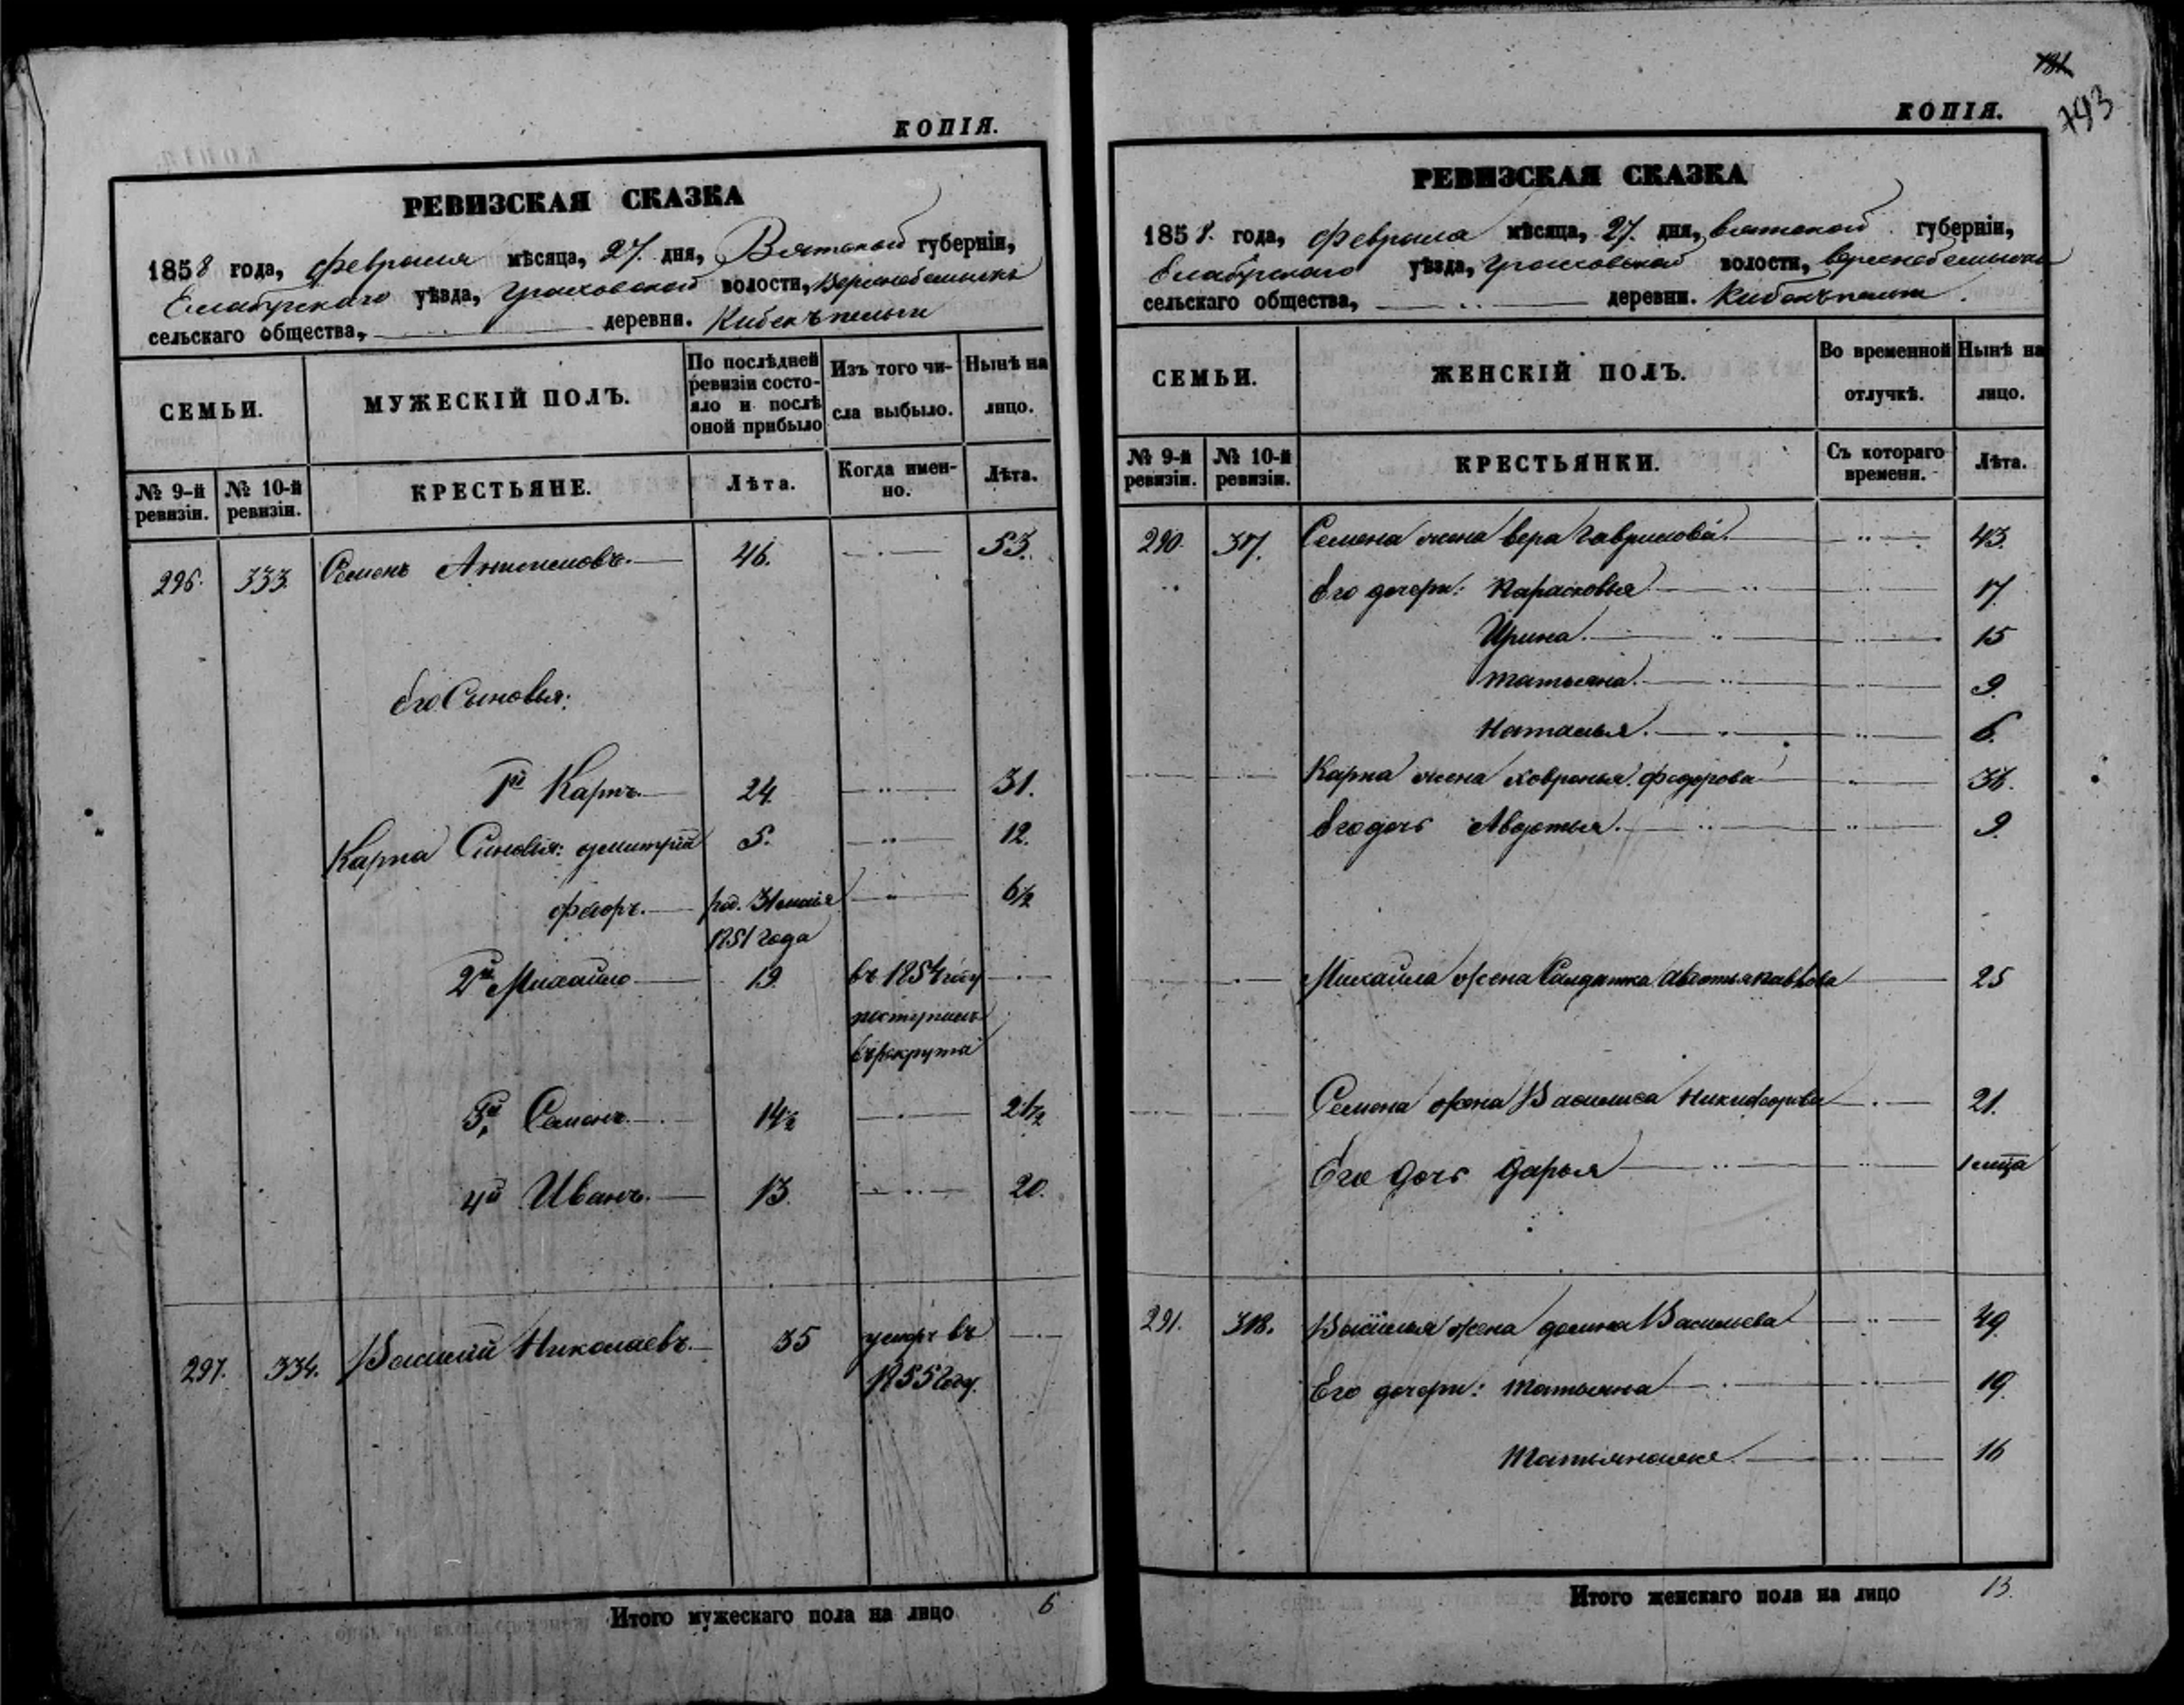 КОПІЯ.
РЕВИЗСКАЯ СКАЗКА
1858 года, февраля мѣсяца, 27. дня, Вятской губерніи,
Елабужскаго уѣзда, Граховской волости,
сельскаго общества, деревни.
СЕМЬИ.
МУЖЕСКІЙ ПОЛЪ.
По послѣдней ревизіи состо-
яло и послѣ
оной прибыло
Изъ того чи-
сла выбыло.
Нынѣ на
лицо.
№ 9-й ревизіи.
№ 10-й ревизіи.
КРЕСТЬЯНЕ.
Лѣта.
Когда имен-
но.
Лѣта.
296. 333. Семенъ 46. 53.
Его Сыновья:
1й Карпъ 24. 31.
Карпа Сыновья: Дмитрій 5. 12.
Федоръ. род. 31 маія 6½
1851 года
2й Михайло 19. въ 1854 году
поступилъ
въ рекруты
3й Семенъ. 14½ 21½
4й Иванъ. 13. 20.
297. 334. Василій Николаевъ. 35 умеръ въ
1855 году.
Итого мужескаго пола на лицо 6
181
793
КОПІЯ.
РЕВИЗСКАЯ СКАЗКА
1858. года, февраля мѣсяца, 27. дня, Вятской губерніи,
Елабужскаго уѣзда, Граховской волости,
сельскаго общества, деревни.
СЕМЬИ.
ЖЕНСКІЙ ПОЛЪ.
Во временной
отлучкѣ.
Нынѣ на
лицо.
№ 9-й ревизіи.
№ 10-й ревизіи.
КРЕСТЬЯНКИ.
Съ котораго
времени.
Лѣта.
290. 317. Семена жена Вера Гаврилова. 43.
Его дочери: Парасковья 17.
Ирина. 15
Татьяна. 9.
Наталья. 6.
Карпа жена Ховронья Федорова 36.
Его дочь Авдотья. 9.
Михайла жена Солдатка Авдотья Павлова 25
Семена жена Василиса Никифорова 21.
Его дочь Дарья 1 мѣсяца
291. 318. Василья жена Васильева 49.
Его дочери: Татьяна 19.
16
Итого женскаго пола на лицо 13.